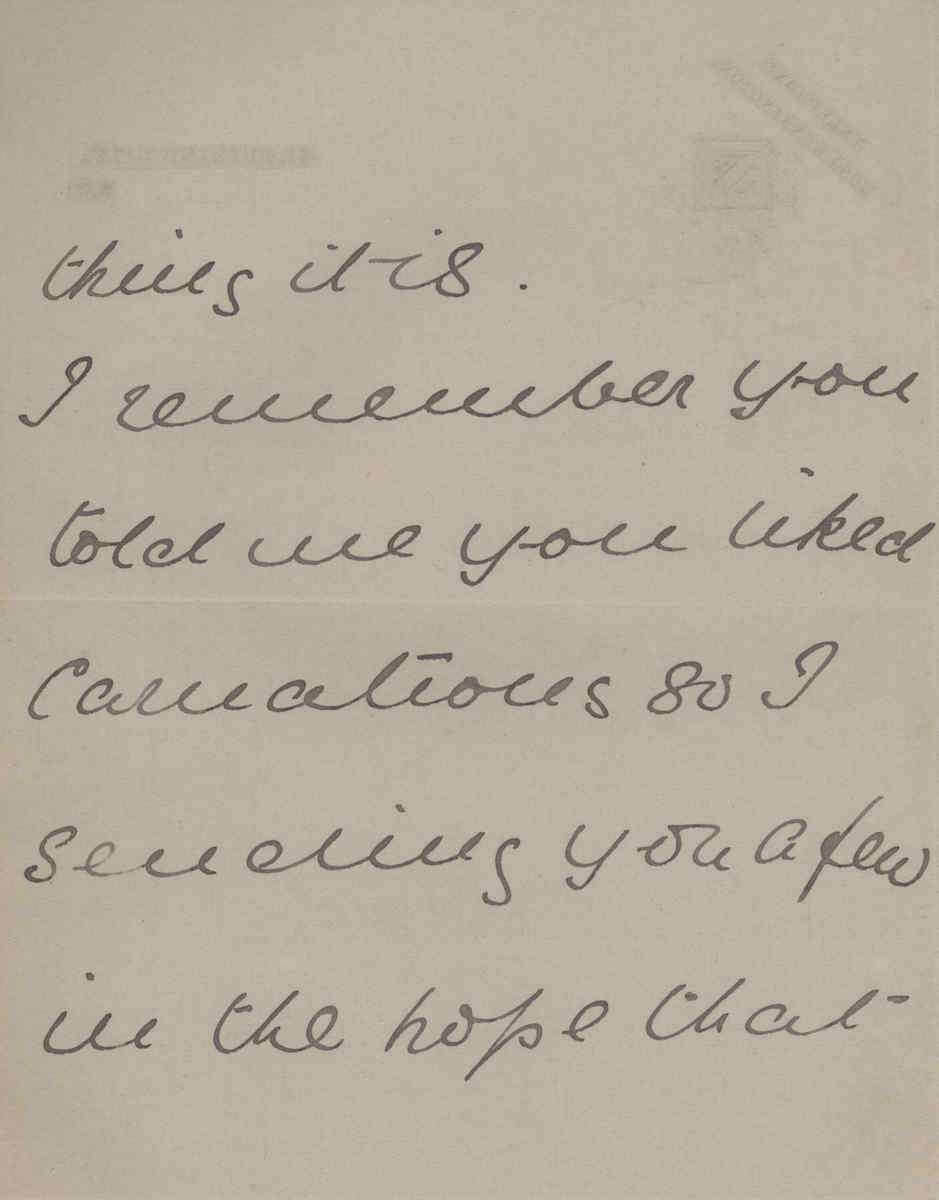 thing it is.
I remember you
told me you liked
Carnations so I
sending you a few
in the hope that